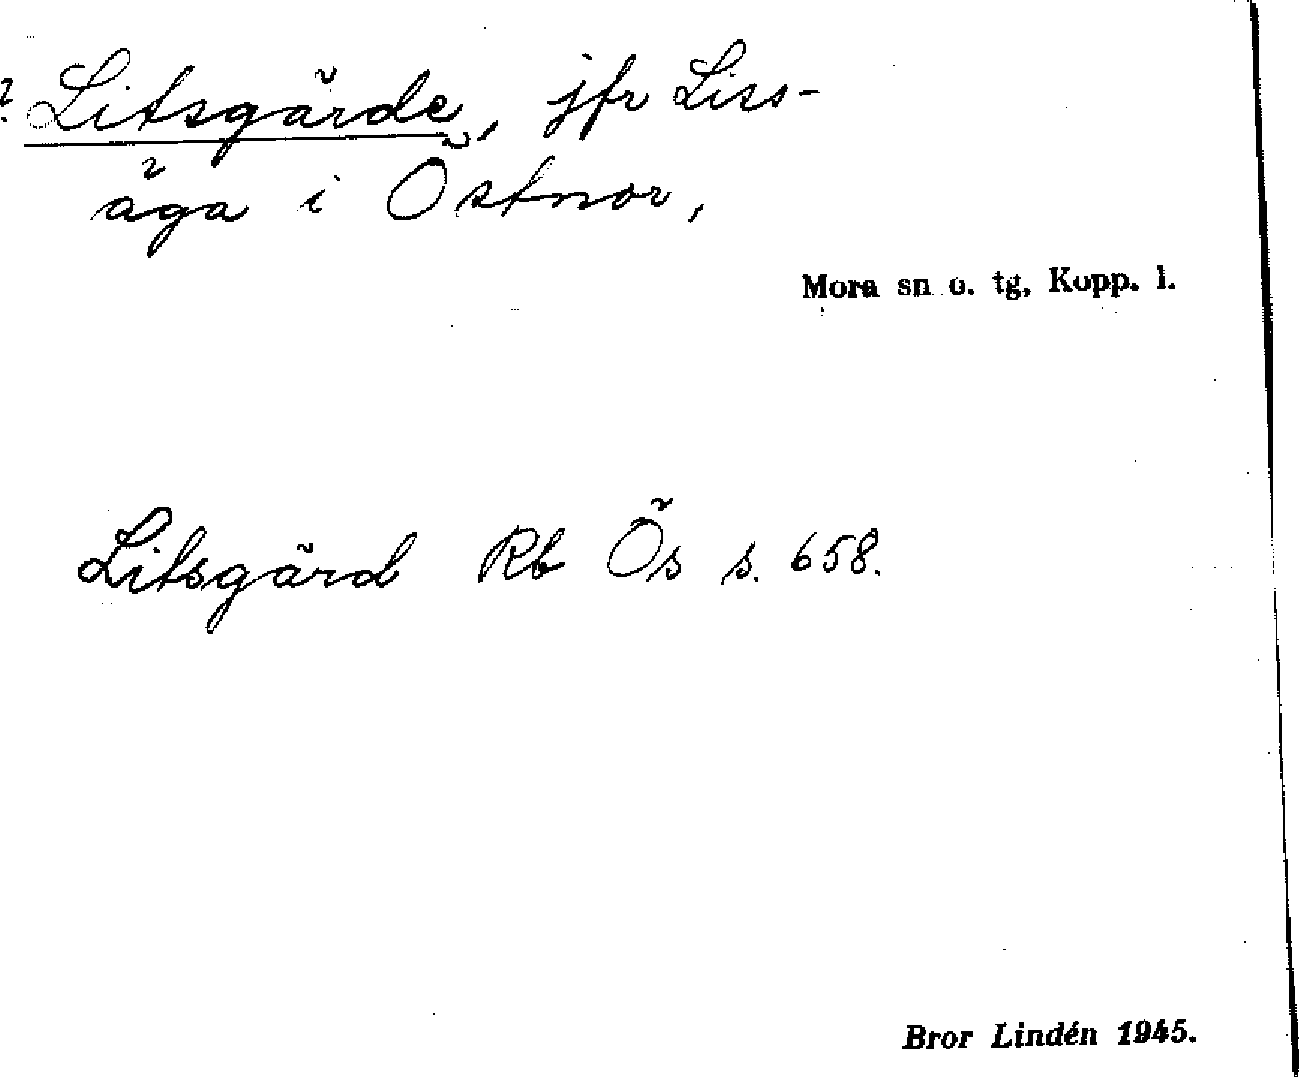 ? Litsgärde, jfr Liss-
äga i Östnor,
Mora sn o. tg, Kopp. l.
Litsgärd Rb Ös s. 658.
Bror Lindén 1945.